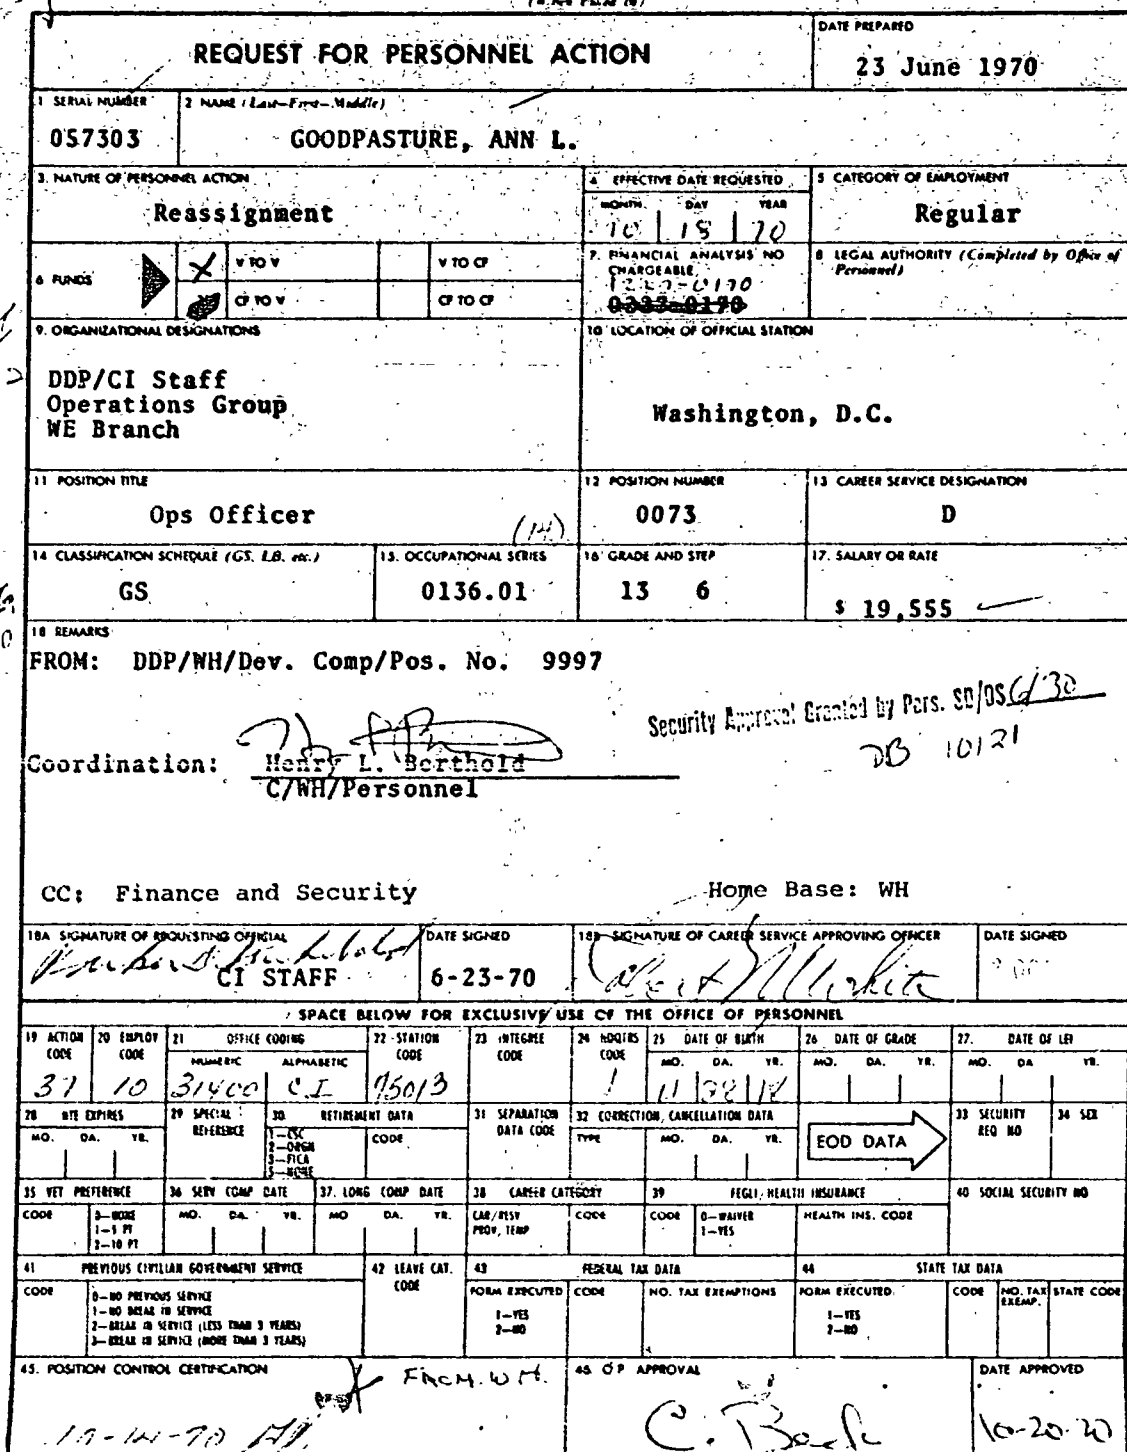 REQUEST FOR PERSONNEL ACTION
DATE PREPARED
23 June 1970
1 SERIAL NUMBER
057303
2 NAME (Last-First-Middle)
GOODPASTURE, ANN L.
3. NATURE OF PERSONNEL ACTION
Reassignment
4 EFFECTIVE DATE REQUESTED
MONTH DAY YEAR
10 18 70
5 CATEGORY OF EMPLOYMENT
Regular
6 FUNDS
X V TO V
V TO CF
CF TO V
CF TO CF
7. FINANCIAL ANALYSIS NO CHARGEABLE
8 LEGAL AUTHORITY (Completed by Office of Personnel)
9. ORGANIZATIONAL DESIGNATIONS
DDP/CI Staff
Operations Group
WE Branch
10 LOCATION OF OFFICIAL STATION
Washington, D.C.
11 POSITION TITLE
Ops Officer
(14)
12 POSITION NUMBER
0073
13 CAREER SERVICE DESIGNATION
D
14 CLASSIFICATION SCHEDULE (GS, LB, etc.)
GS
15. OCCUPATIONAL SERIES
0136.01
16 GRADE AND STEP
13 6
17. SALARY OR RATE
$ 19,555
18 REMARKS
FROM: DDP/WH/Dev. Comp/Pos. No. 9997
Security Approval Granted by Pers. SD/OS 6/30
DB 10/21
Coordination: Henry L. Berthold
C/WH/Personnel
CC: Finance and Security
Home Base: WH
18A SIGNATURE OF REQUESTING OFFICIAL
CI STAFF
DATE SIGNED
6-23-70
18B SIGNATURE OF CAREER SERVICE APPROVING OFFICER
DATE SIGNED
SPACE BELOW FOR EXCLUSIVE USE OF THE OFFICE OF PERSONNEL
19 ACTION CODE
37
20 EMPLOY CODE
10
21 OFFICE CODING
NUMERIC ALPHABETIC
31400 CI
22 STATION CODE
75013
23 INTEGREE CODE
24 HDQTRS CODE
1
25 DATE OF BIRTH
MO. DA. YR.
11 28 18
26 DATE OF GRADE
MO. DA. YR.
27. DATE OF LEI
MO. DA YR.
28 NTE EXPIRES
MO. DA. YR.
29 SPECIAL REFERENCE
30 RETIREMENT DATA
1-CSC
2-ORGN
3-FICA
5-NONE
CODE
31 SEPARATION DATA CODE
32 CORRECTION, CANCELLATION DATA
TYPE MO. DA. YR.
EOD DATA
33 SECURITY REQ NO
34 SEX
35 VET PREFERENCE
CODE
0-NONE
1-5 PT
2-10 PT
36 SERV COMP DATE
MO. DA. YR.
37. LONG COMP DATE
MO DA. YR.
38 CAREER CATEGORY
CAR/RESV
PROV, TEMP
CODE
39 FEGLI, HEALTH INSURANCE
CODE
0-WAIVER
1-YES
HEALTH INS. CODE
40 SOCIAL SECURITY NO
41 PREVIOUS CIVILIAN GOVERNMENT SERVICE
CODE
0-NO PREVIOUS SERVICE
1-NO BREAK IN SERVICE
2-BREAK IN SERVICE (LESS THAN 3 YEARS)
3-BREAK IN SERVICE (MORE THAN 3 YEARS)
42 LEAVE CAT. CODE
43 FEDERAL TAX DATA
FORM EXECUTED CODE NO. TAX EXEMPTIONS
1-YES
2-NO
44 STATE TAX DATA
FORM EXECUTED
1-YES
2-NO
CODE NO. TAX EXEMP. STATE CODE
45. POSITION CONTROL CERTIFICATION
FROM WH.
10-14-70
46 O P APPROVAL
DATE APPROVED
10-20-70